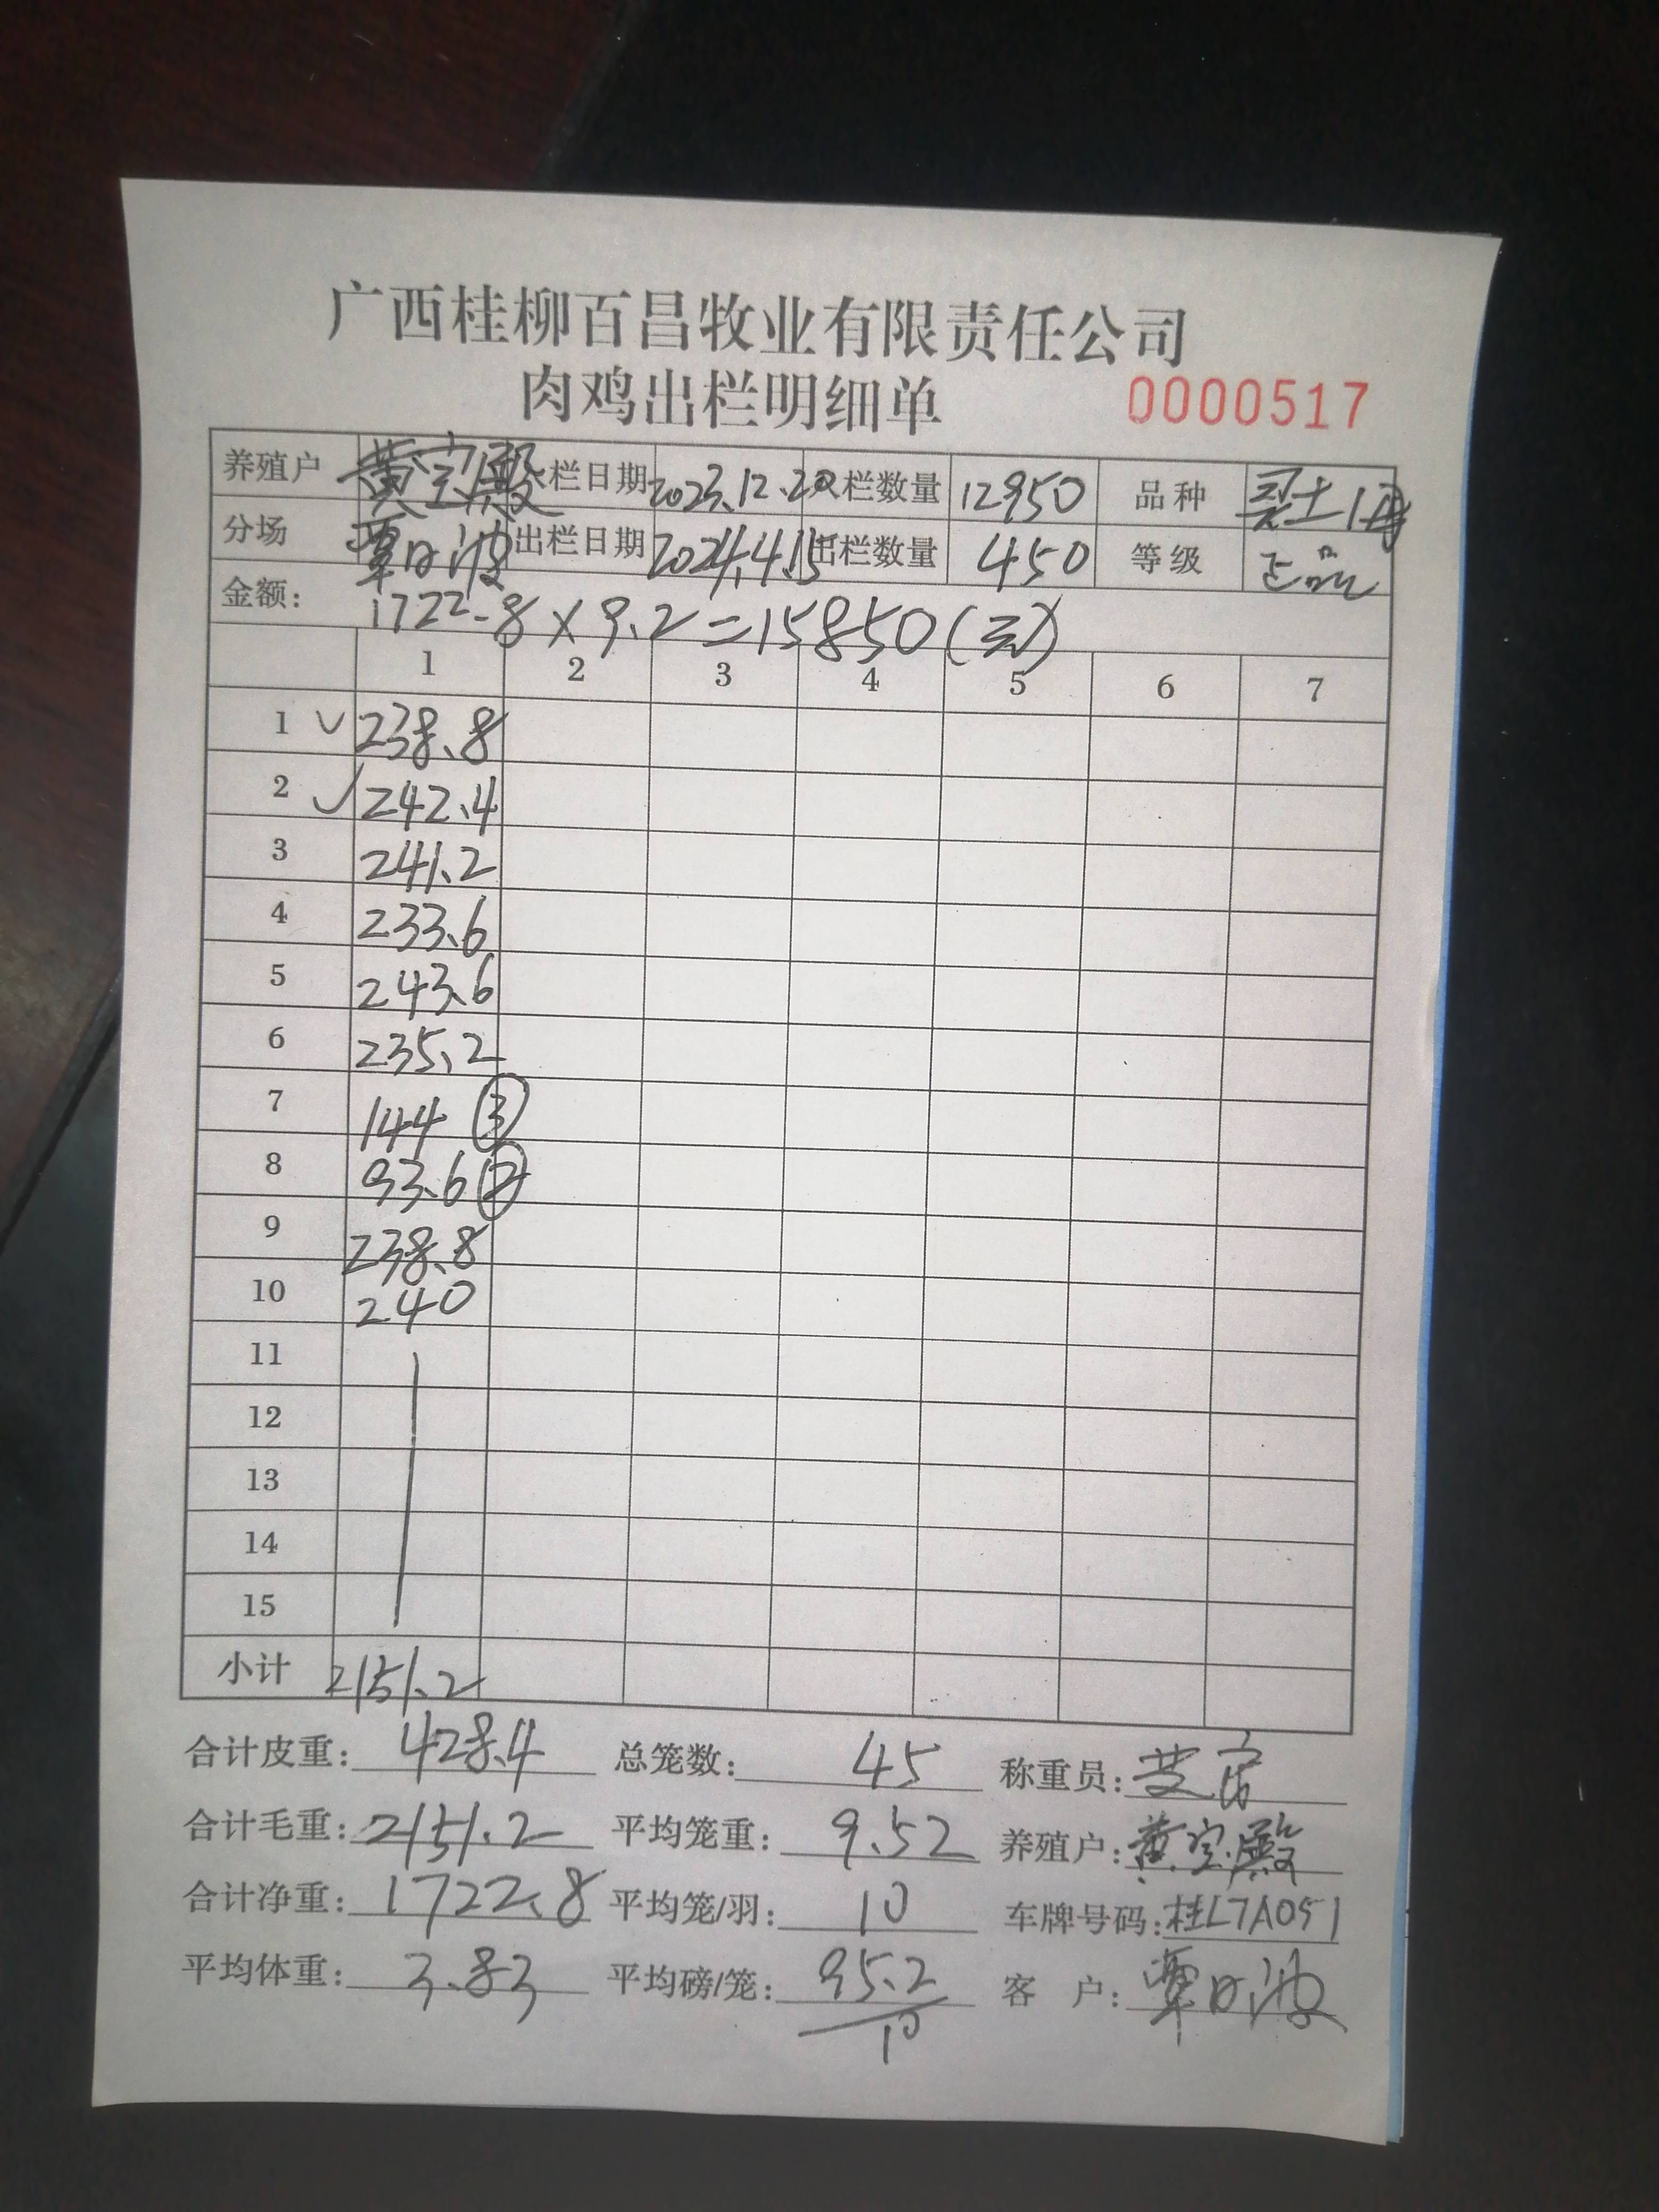 广西桂柳百昌牧业有限责任公司
肉鸡出栏明细单 0000517
养殖户 黄宝殿 入栏日期 2023.12.20 入栏数量 12950 品种
分场 覃日波 出栏日期 2024.4.15 出栏数量 450 等级 正品
金额: 1722.8×9.2=15850(元)
1 2 3 4 5 6 7
1 ✓ 238.8
2 ✓ 242.4
3 241.2
4 233.6
5 243.6
6 235.2
7 144 ③
8 93.6 ②
9 238.8
10 240
11
12
13
14
15
小计 2151.2
合计皮重: 428.4 总笼数: 45 称重员:
合计毛重: 2151.2 平均笼重: 9.52 养殖户: 黄宝殿
合计净重: 1722.8 平均笼/羽: 10 车牌号码: 桂L7A051
平均体重: 3.83 平均磅/笼: 95.2 客 户: 覃日波
10